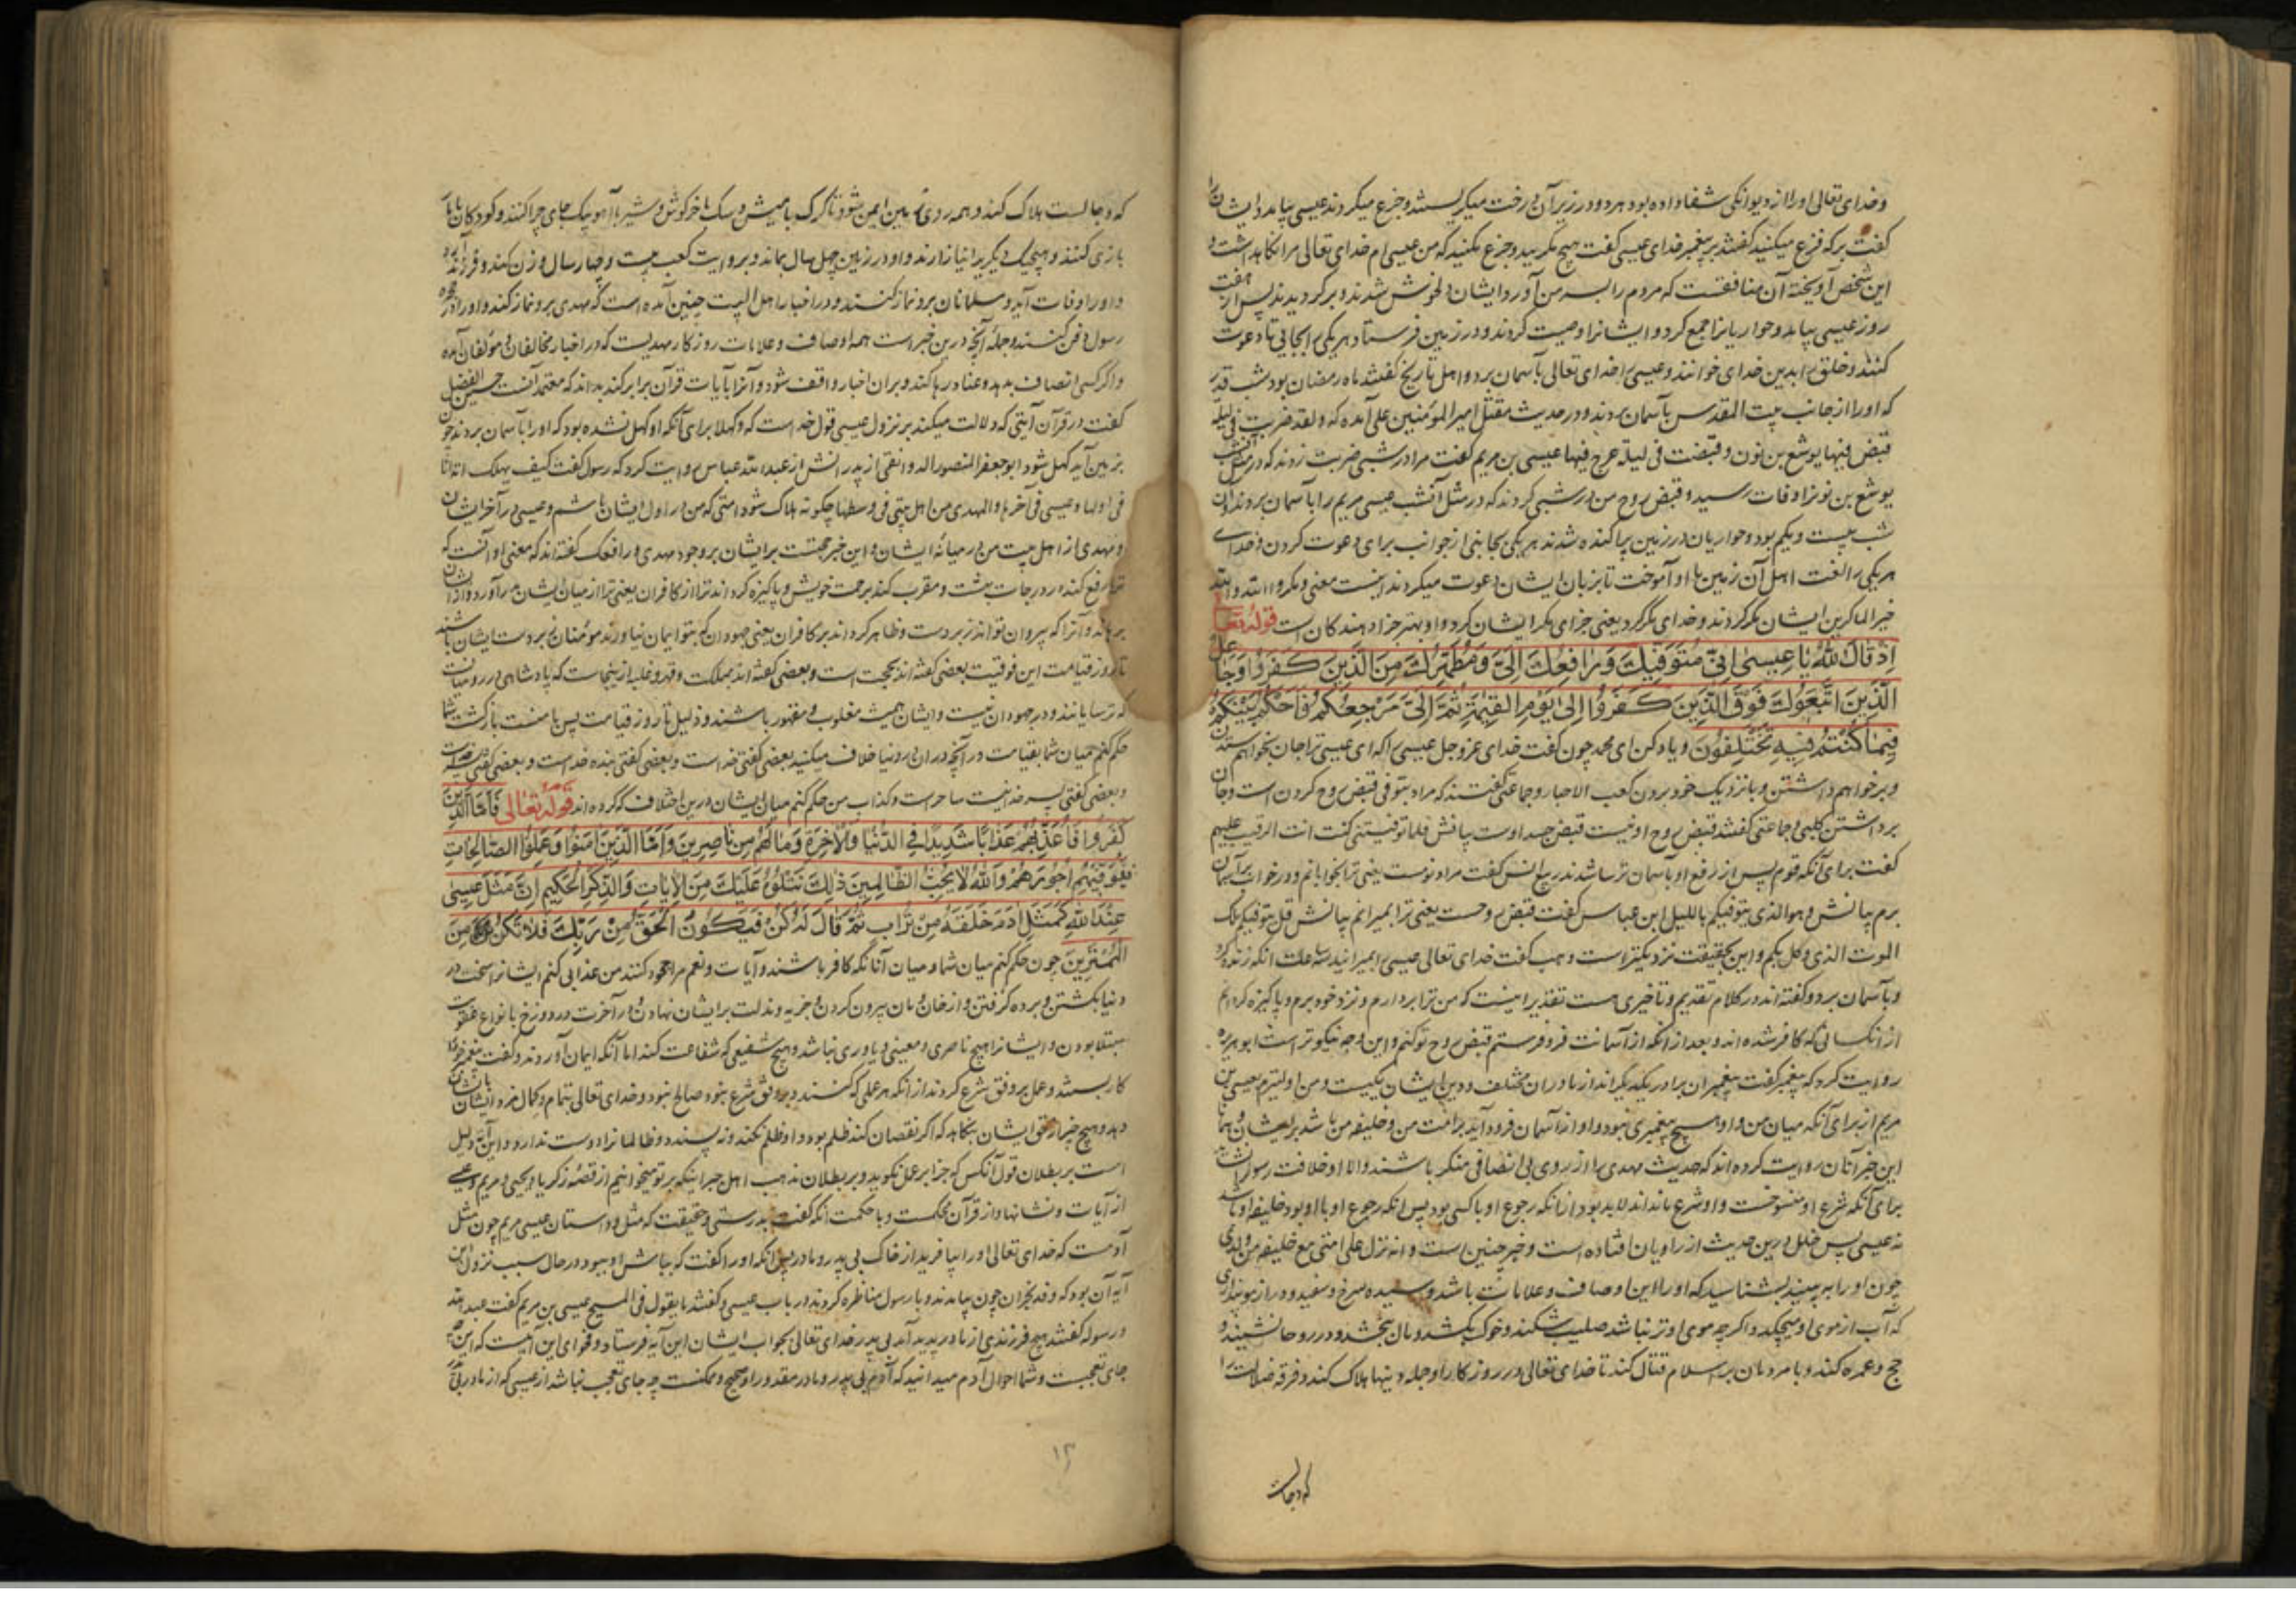 وخدای تعالی او را از دیوانکی شفا داده بود هر دو در زیر آن درخت میکریستند وجزع میکردند عیسی بیامد وایشانرا
کفت برکه فزع میکنید کفتند بر پیغمبر خدای عیسی کفت هیچ مکریید وجزع مکنید که من عیسی ام خدای تعالی مرا نکاهداشت و
این شخص آویخته آن منافقست که مردم را بسر من آورد ایشان دلخوش شدند وبرکردیدند پس از هفت
روز عیسی بیامد وحواریانرا جمع کرد و ایشانرا وصیت کردند ودر زمین فرستاد هر یکی را بجایی تا دعوت
کنند وخلق را بدین خدای خوانند وعیسی را خدای تعالی بآسمان برد و اهل تاریخ کفتند ماه رمضان بود شب قدر
که او را از جانب بیت المقدس بآسمان بردند ودر حدیث مقتل امیر المؤمنین علی آمده که ولقد ضربت فی لیلة
قبض فیها یوشع بن نون وقبضت فی لیلة عرج فیها عیسی بن مریم کفت مرا در شبی ضربت زدند که در مثل آنشب
یوشع بن نونرا وفات رسید وقبض روح من در شبی کردند که در مثل آنشب عیسی مریم را بآسمان بردند وآن
شب بیست ویکم بود وحواریان در زمین پراکنده شدند هر یکی بجانبی از جوانب برای دعوت کردن وخدای
هر یکی را لغت اهل آن زمین باو آموخت تا بزبان ایشان دعوت میکردند اینست معنی ومکروا ومکر الله والله
خیر الماکرین ایشان مکر کردند وخدای مکر کرد یعنی جزای مکر ایشان کرد و او بهتر جزا دهندکان است قوله تعالی
اِذْ قَالَ اللهُ یَا عِیسٰی اِنِّی مُتَوَفِّیكَ وَرَافِعُكَ اِلَیَّ وَمُطَهِّرُكَ مِنَ الَّذِینَ كَفَرُوا وَجَاعِلُ
الَّذِینَ اتَّبَعُوكَ فَوْقَ الَّذِینَ كَفَرُوا اِلٰی یَوْمِ الْقِیٰمَةِ ثُمَّ اِلَیَّ مَرْجِعُكُمْ فَاَحْكُمُ بَیْنَكُمْ
فِیمَا كُنْتُمْ فِیهِ تَخْتَلِفُونَ ویاد کن ای محمد چون کفت خدای عز وجل عیسی را که ای عیسی ترا جان بخواهم ستدن
وبر خواهم داشتن وبا نزدیک خود بردن کعب الاحبار وجماعتی کفتند که مراد بتوفی قبض روح کردن است وجان
برداشتن کلبی وجماعتی کفتند قبض روح او نیست قبض جسد اوست بیانش فلما توفیتنی کنت انت الرقیب علیهم
کفت برای آنکه قوم پس از رفع او بآسمان ترسا شدند ربیع انس کفت مراد نومست یعنی ترا بخوابانم ودر خواب بر آسمان
برم بیانش وهو الذی یتوفیکم باللیل ابن عباس کفت قبض روحست یعنی ترا بمیرانم بیانش قل یتوفیکم ملک
الموت الذی وکل بکم واین بحقیقت نزدیکتر است وهب کفت خدای تعالی عیسی را بمیرانید سه ساعت آنکه زنده کرد
وبآسمان برد وکفته اند در کلام تقدیم وتاخیری هست تقدیر اینست که من ترا بردارم ونزد خود برم وپاکیزه کردانم
از آنکسانی که کافر شده اند وبعد از آنکه از آسمانت فرو فرستم قبض روح تو کنم واین وجه نیکوتر است ابو هریره
روایت کرد که پیغمبر کفت پیغمبران برادر یکدیکراند از مادران مختلف ودین ایشان یکیست ومن اولیترم بعیسی بن
مریم از برای آنکه میان من واو هیچ پیغمبری نبود واو از آسمان فرود آید بر امت من وخلیفه من باشد بر ایشان
این خبر آنان روایت کرده اند که حدیث مهدی را از روی بی انصافی منکر باشند والا او خلافت رسول
برای آنکه شرع او منسوخست واو شرع باندند لابد بود از آنکه رجوع او با کسی بود پس آنکه رجوع او با او بود خلیفه او باشد
نه عیسی پس خلل درین حدیث از راویان افتاده است وخبر چنین است وانه نزل علی امتی مع خلیفه من ولدی
چون او را ببینید بشناسید که او را این اوصاف وعلامات باشد سرخ وسفید ودراز مو
که آب از موی او میچکد واکرچه موی او تر نباشد صلیب شکند وخوک بکشد ومال ببخشد ودر روحا نشیند و
حج وعمره کند وبا مردمان بر اسلام قتال کند تا خدای تعالی در روزکار او جمله دینها هلاک کند وفرقه ضلالت را
که دجالست
که دجالست هلاک کند وهمه روی زمین ایمن شود تا کرک با میش وسک با خرکوش وشیر با آهو بیک جای چرا کنند وکودکان با مار
بازی کنند وهیچیک دیکری را نیازارند واو در زمین چهل سال بماند وبروایت کعب بیست وچهار سال وزن کند وفرزند آید
واو را وفات آید ومسلمانان برو نماز کنند ودر اخبار اهل البیت چنین آمده است که مهدی برو نماز کند واو را در حجره
رسول دفن کنند وجمله آنچه درین خبر است همه اوصاف وعلامات روزکار مهدیست که در اخبار مخالفان ومؤلفان آمده
واکر کسی انصاف بدهد وعناد رها کند وبر آن اخبار واقف شود وآنرا با آیات قرآن برابر کند بداند که معتمد آنست حسین الفضل
کفت در قرآن آیتی که دلالت میکند بر نزول عیسی قول خداست که وکهلا برای آنکه او کهل نشده بود که او را بآسمان بردند چون
بزمین آید کهل شود ابو جعفر المنصور الدوانقی از پدرانش از عبدالله عباس روایت کرد که رسول کفت کیف یهلک امة انا
فی اولها وعیسی فی آخرها والمهدی من اهل بیتی فی وسطها چکونه هلاک شود امتی که من در اول ایشان باشم وعیسی در آخر ایشان
ومهدی از اهل بیت من در میانه ایشان واین خبر حجتست بر ایشان بر وجود مهدی ورافعک کفته اند که معنی او آنست که
ترا رفع کند در درجات بهشت ومقرب کند برحمت خویش وپاکیزه کرداند ترا از کافران یعنی ترا از میان ایشان برآورد واز ایشان
برهاند وآنرا که پیروان تو اند زبردست وظاهر کرداند بر کافران یعنی جهودان که بتو ایمان نیاوردند مؤمنان زبردست ایشان باشند
تا روز قیامت این فوقیت بعضی کفته اند بحجت است وبعضی کفته اند بمملکت وقهر وغلبه از ینجاست که پادشاهی در روم
که ترسایانند ودر جهودان نیست وایشان همیشه مغلوب ومقهور باشند وذلیل تا روز قیامت پس با منست بازکشت شما
حکم کنم میان شما بقیامت در آنچه در آن در دنیا خلاف میکنید بعضی کفتی خداست وبعضی کفتی بنده خداست وبعضی کفتی
وبعضی کفتی پسر خدا نیست ساحر است وکذاب من حکم کنم میان ایشان درین اختلاف که کرده اند قوله تعالی فَاَمَّا الَّذِینَ
كَفَرُوا فَاُعَذِّبُهُمْ عَذَابًا شَدِیدًا فِی الدُّنْیَا وَالْاٰخِرَةِ وَمَا لَهُمْ مِنْ نَاصِرِینَ وَاَمَّا الَّذِینَ اٰمَنُوا وَعَمِلُوا الصَّالِحَاتِ
فَیُوَفِّیهِمْ اُجُورَهُمْ وَاللهُ لَا یُحِبُّ الظَّالِمِینَ ذٰلِكَ نَتْلُوهُ عَلَیْكَ مِنَ الْاٰیَاتِ وَالذِّكْرِ الْحَكِیمِ اِنَّ مَثَلَ عِیسٰی
عِنْدَ اللهِ كَمَثَلِ اٰدَمَ خَلَقَهُ مِنْ تُرَابٍ ثُمَّ قَالَ لَهُ كُنْ فَیَكُونُ الْحَقُّ مِنْ رَبِّكَ فَلَا تَكُنْ مِنَ
الْمُمْتَرِینَ چون حکم کنم میان شما ومیان آنانکه کافر باشند وآیات ونعم مرا جحود کنند من عذابی کنم ایشانرا سخت در
دنیا بکشتن وبرده کرفتن واز خان ومان بیرون کردن وجزیه ومذلت بر ایشان نهادن ودر آخرت در دوزخ بانواع عقوبت
مبتلا بودن وایشانرا هیچ ناصری ومعینی ویاوری نباشد وهیچ شفیعی که شفاعت کند اما آنکه ایمان آوردند وکفت پیغمبر خود را
کار بستند وعمل بر وفق شرع کردند از آنکه هر عملی که کنند نه بر وفق شرع بود صالح نبود وخدای تعالی بتمام وکمال مزد ایشان بایشان
دهد وهیچ چیز از حق ایشان بنکاهد که اکر نقصان کند ظلم بود واو ظلم نکند ونه پسندد وظالمانرا دوست ندارد واین آیه دلیل
است بر بطلان قول آنکس که جزا بر عمل نکوید وبر بطلان مذهب اهل جبر اینکه بر تو میخوانیم از قصه زکریا ویحیی ومریم وعیسی
از آیات ونشانها واز قرآن محکمست وبا حکمت آنکه کفت بدرستی وحقیقت که مثل وداستان عیسی مریم چون مثل
آدمست که خدای تعالی او را بیافرید از خاک بی پدر ومادر پس آنکه او را کفت که بباش او ببود در حال سبب نزول این
آیه آن بود که وفد نجران چون بیامدند وبا رسول مناظره کردند در باب عیسی وکفتند ما یقول فی المسیح عیسی بن مریم کفت عبدالله
ورسوله کفتند هیچ فرزندی از مادر پدید آمد بی پدر خدای تعالی بجواب ایشان این آیه فرستاد وفحوای این آنست که این چه
جای تعجبست وشما احوال آدم میدانید که آدم بی پدر ومادر مقدور او صحیح وممکنست چه جای تعجب نباشد از عیسی که از مادر بی